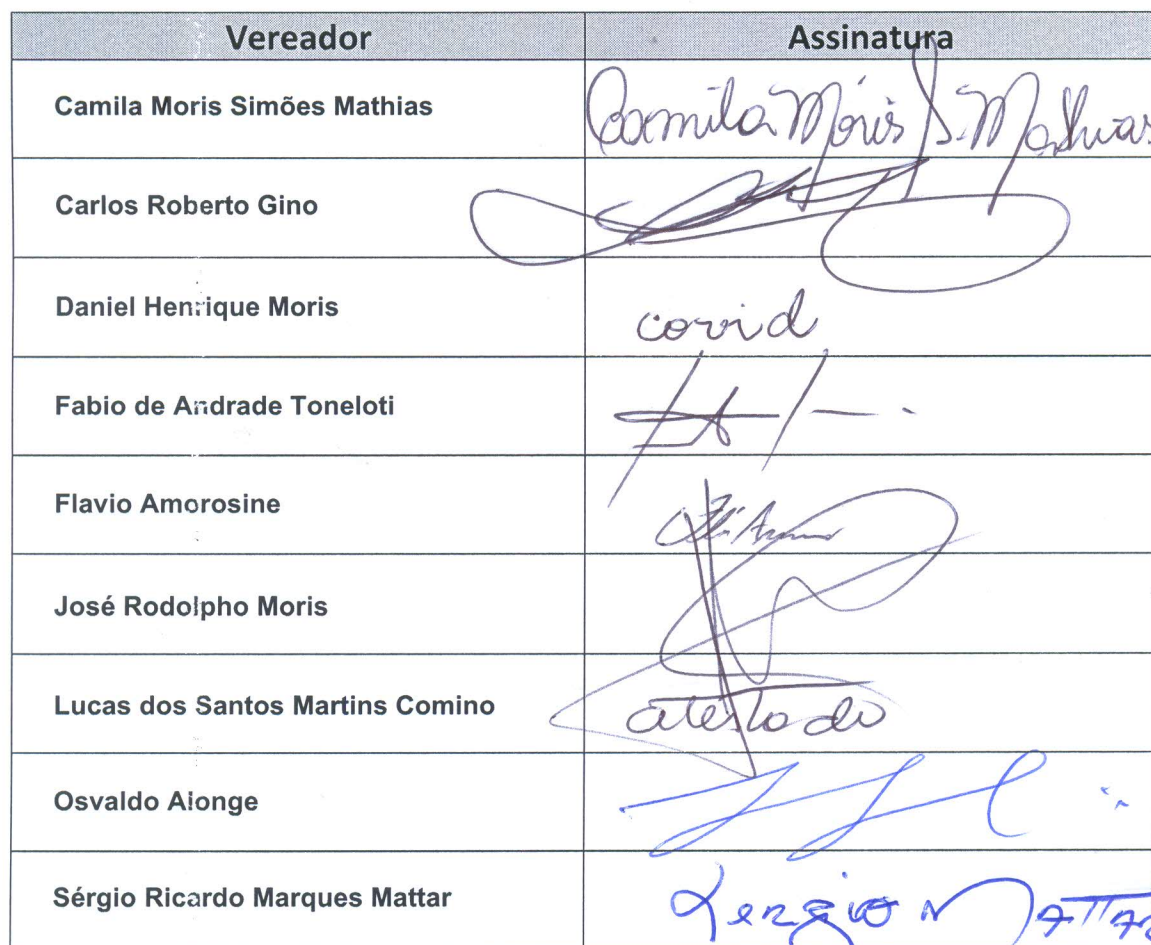 Vereador Assinatura
Camila Moris Simões Mathias Camila Móris S. Mathias
Carlos Roberto Gino
Daniel Henrique Moris covid
Fabio de Andrade Toneloti
Flavio Amorosine
José Rodolpho Moris
Lucas dos Santos Martins Comino atestado
Osvaldo Alonge
Sérgio Ricardo Marques Mattar Sergio M Mattar